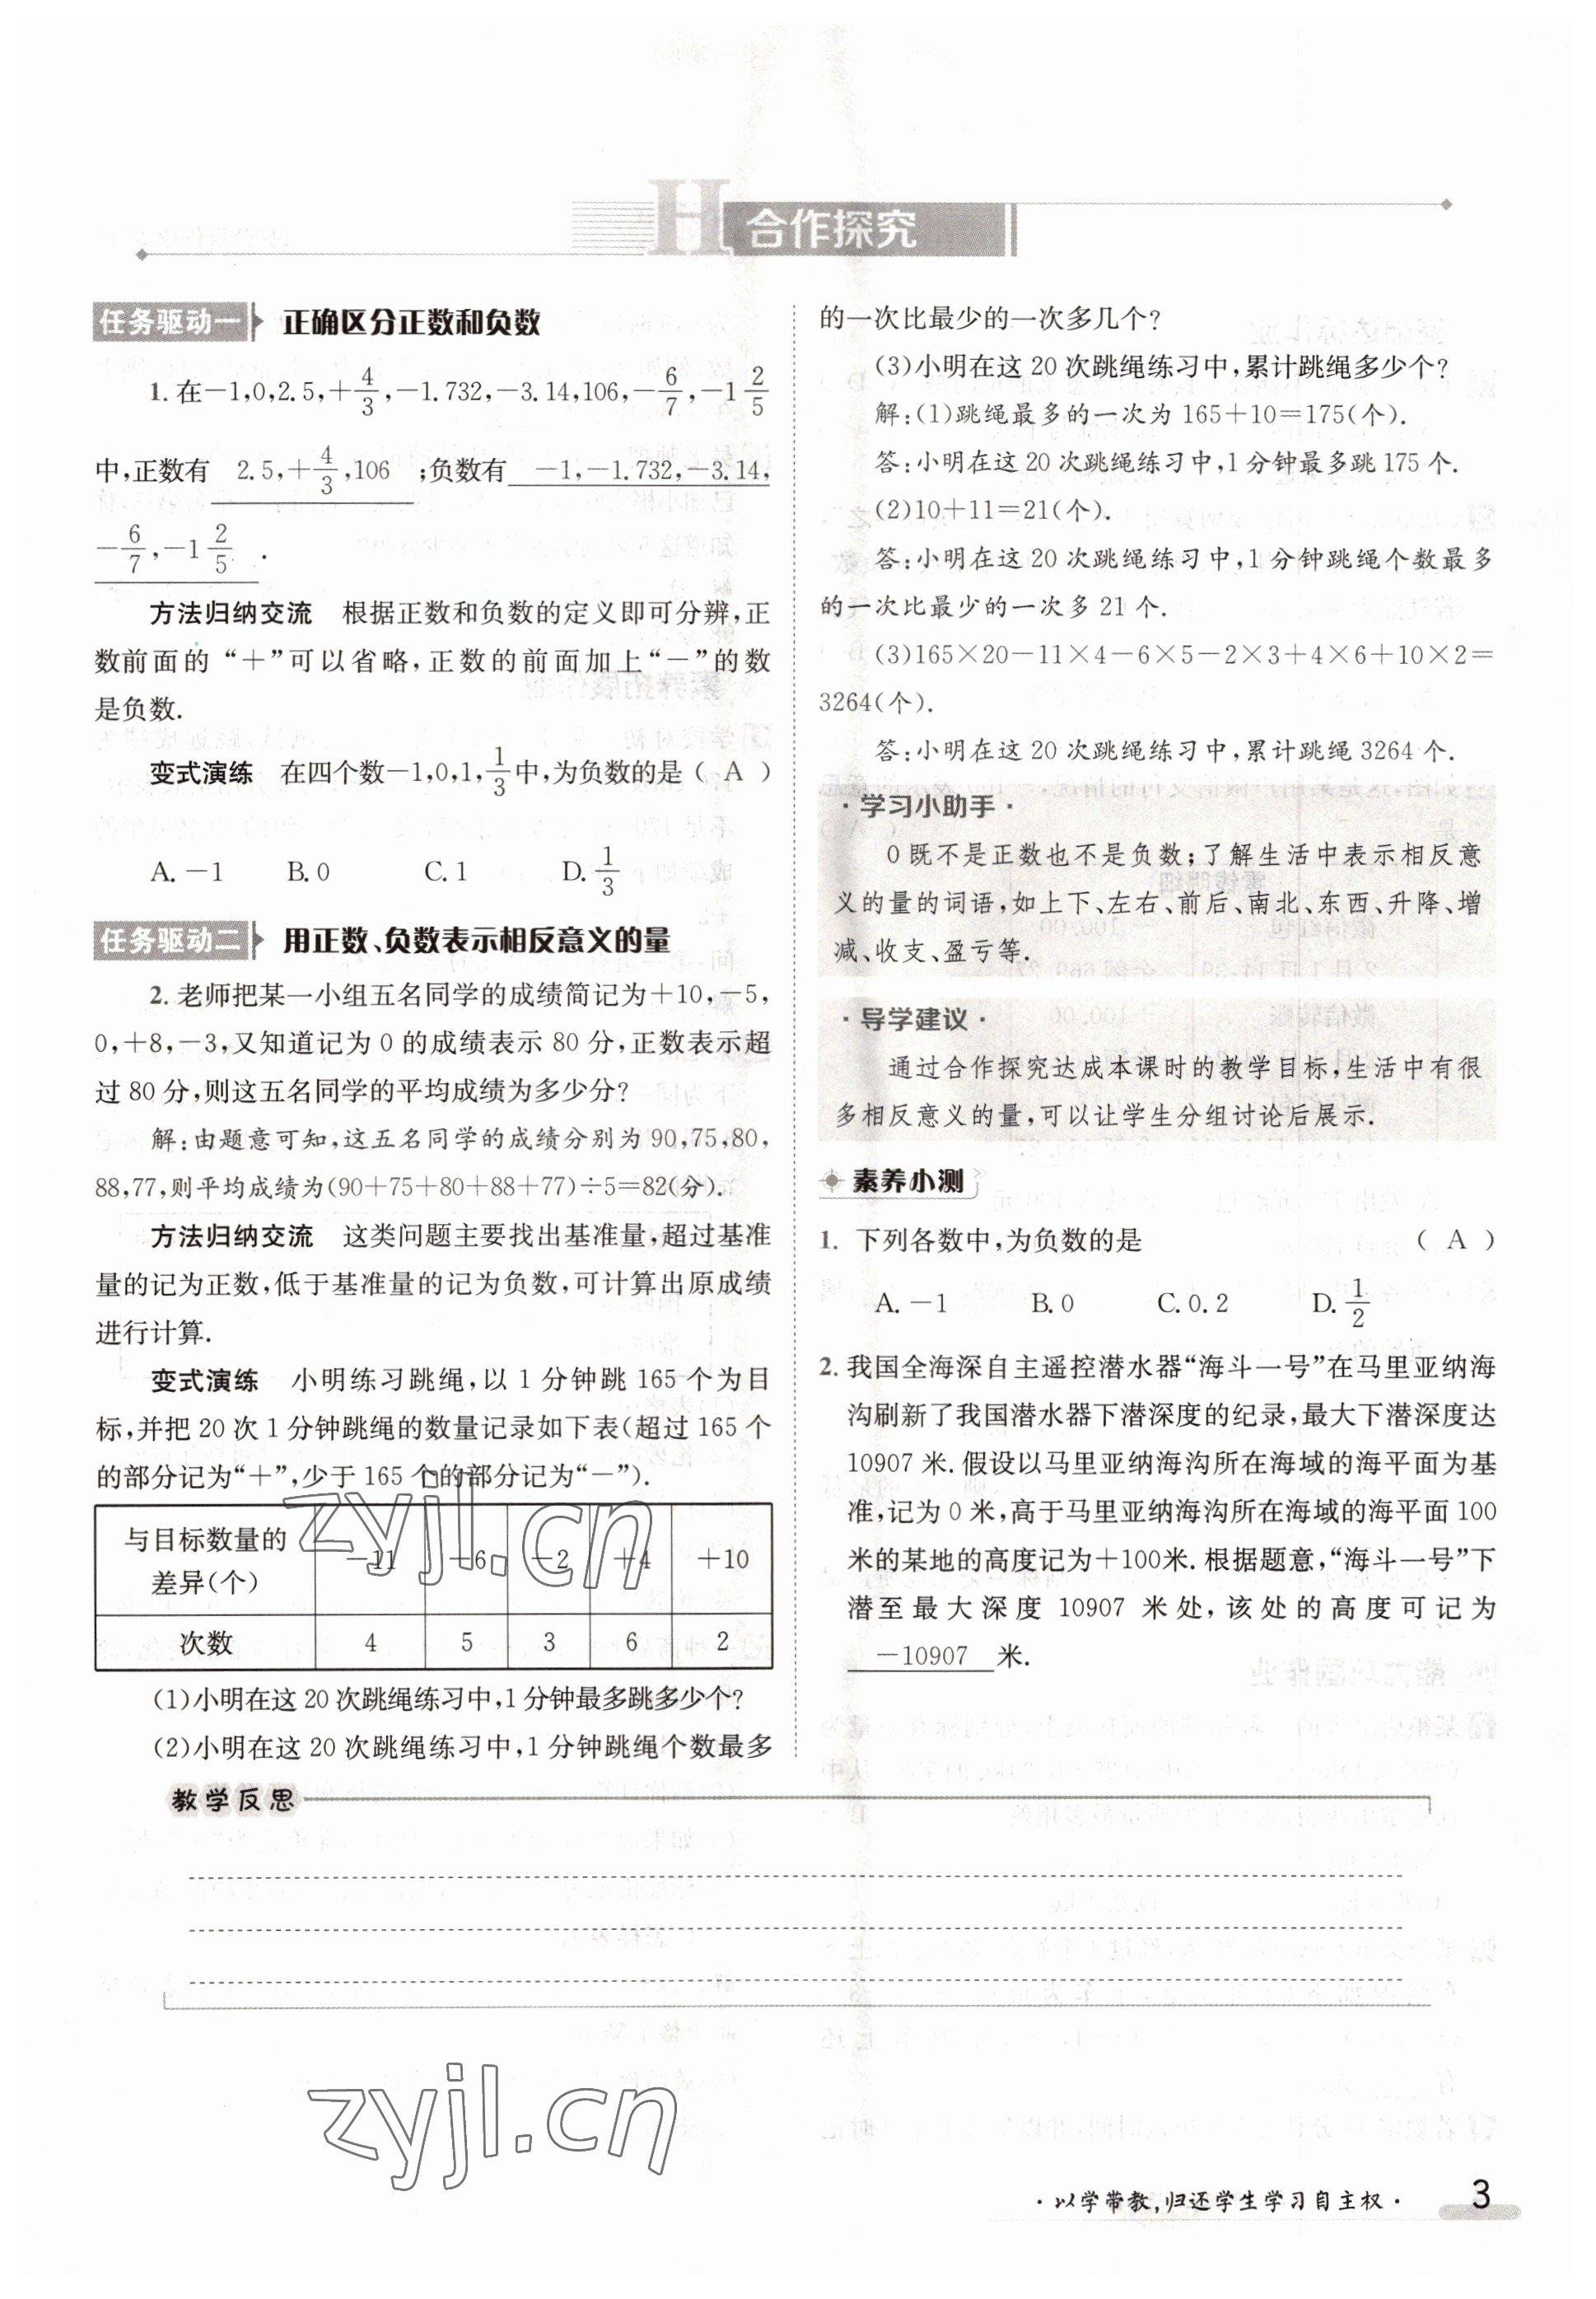 H 合作探究
任务驱动一 正确区分正数和负数
1. 在-1,0,2.5,+4/3,-1.732,-3.14,106,-6/7,-1 2/5
中,正数有 2.5,+4/3,106 ;负数有 -1,-1.732,-3.14,
-6/7,-1 2/5 .
方法归纳交流 根据正数和负数的定义即可分辨,正
数前面的“+”可以省略,正数的前面加上“-”的数
是负数.
变式演练 在四个数-1,0,1,1/3中,为负数的是( A )
A. -1 B. 0 C. 1 D. 1/3
任务驱动二 用正数、负数表示相反意义的量
2. 老师把某一小组五名同学的成绩简记为+10,-5,
0,+8,-3,又知道记为0的成绩表示80分,正数表示超
过80分,则这五名同学的平均成绩为多少分?
解:由题意可知,这五名同学的成绩分别为90,75,80,
88,77,则平均成绩为(90+75+80+88+77)÷5=82(分).
方法归纳交流 这类问题主要找出基准量,超过基准
量的记为正数,低于基准量的记为负数,可计算出原成绩
进行计算.
变式演练 小明练习跳绳,以1分钟跳165个为目
标,并把20次1分钟跳绳的数量记录如下表(超过165个
的部分记为“+”,少于165个的部分记为“-”).
与目标数量的
差异(个) -11 -6 -2 +4 +10
次数 4 5 3 6 2
(1)小明在这20次跳绳练习中,1分钟最多跳多少个?
(2)小明在这20次跳绳练习中,1分钟跳绳个数最多
的一次比最少的一次多几个?
(3)小明在这20次跳绳练习中,累计跳绳多少个?
解:(1)跳绳最多的一次为165+10=175(个).
答:小明在这20次跳绳练习中,1分钟最多跳175个.
(2)10+11=21(个).
答:小明在这20次跳绳练习中,1分钟跳绳个数最多
的一次比最少的一次多21个.
(3)165×20-11×4-6×5-2×3+4×6+10×2=
3264(个).
答:小明在这20次跳绳练习中,累计跳绳3264个.
·学习小助手·
0既不是正数也不是负数;了解生活中表示相反意
义的量的词语,如上下、左右、前后、南北、东西、升降、增
减、收支、盈亏等.
·导学建议·
通过合作探究达成本课时的教学目标,生活中有很
多相反意义的量,可以让学生分组讨论后展示.
素养小测
1. 下列各数中,为负数的是 ( A )
A. -1 B. 0 C. 0.2 D. 1/2
2. 我国全海深自主遥控潜水器“海斗一号”在马里亚纳海
沟刷新了我国潜水器下潜深度的纪录,最大下潜深度达
10907米.假设以马里亚纳海沟所在海域的海平面为基
准,记为0米,高于马里亚纳海沟所在海域的海平面100
米的某地的高度记为+100米.根据题意,“海斗一号”下
潜至最大深度10907米处,该处的高度可记为
-10907 米.
zyjl.cn
教学反思
zyjl.cn
·以学带教,归还学生学习自主权·
3